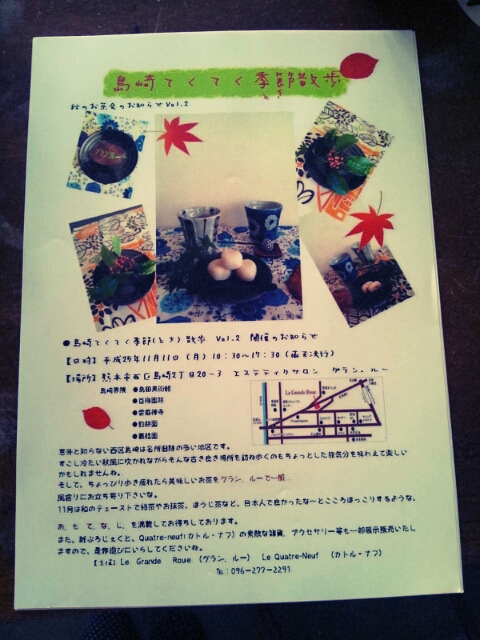 島崎てくてく季節散歩
とき
秋のお茶会のお知らせVol.2
●島崎てくてく季節(とき)散歩 Vol.2 開催のお知らせ
【日時】平成25年11月11日(月)10:30~17:30(雨天決行)
【場所】熊本市西区島崎2丁目20-3 エステティクサロン グラン.ルー
島崎界隈 ●島田美術館
●百梅園跡
●雲巌禅寺
●釣耕園
●叢桂園
La Grande Roue
意外と知らない西区島崎は名所旧跡の多い地区です。
すこし冷たい秋風に吹かれながらそんな古き良き場所を訪ね歩くのもちょっとした旅気分を味わえて楽しい
かもしれませんね。
そして、ちょっぴり歩き疲れたら美味しいお茶をグラン.ルーで一服...
風宿りにお立ち寄り下さいな。
11月は和のテーストで緑茶やお抹茶、ほうじ茶など、日本人で良かったな~とこころほっこりするような、
お.も.て.な.し.を満載してお待ちしております。
また、新ぷろじぇくと、Quatre-neuf(カトル・ナフ)の素敵な雑貨、アクセサリー等も一部展示販売いたし
ますので、是非遊びにいらしてくださいね。
【主催】Le Grande Roue (グラン.ルー) Le Quatre-Neuf (カトル-ナフ)
℡:096-277-2291